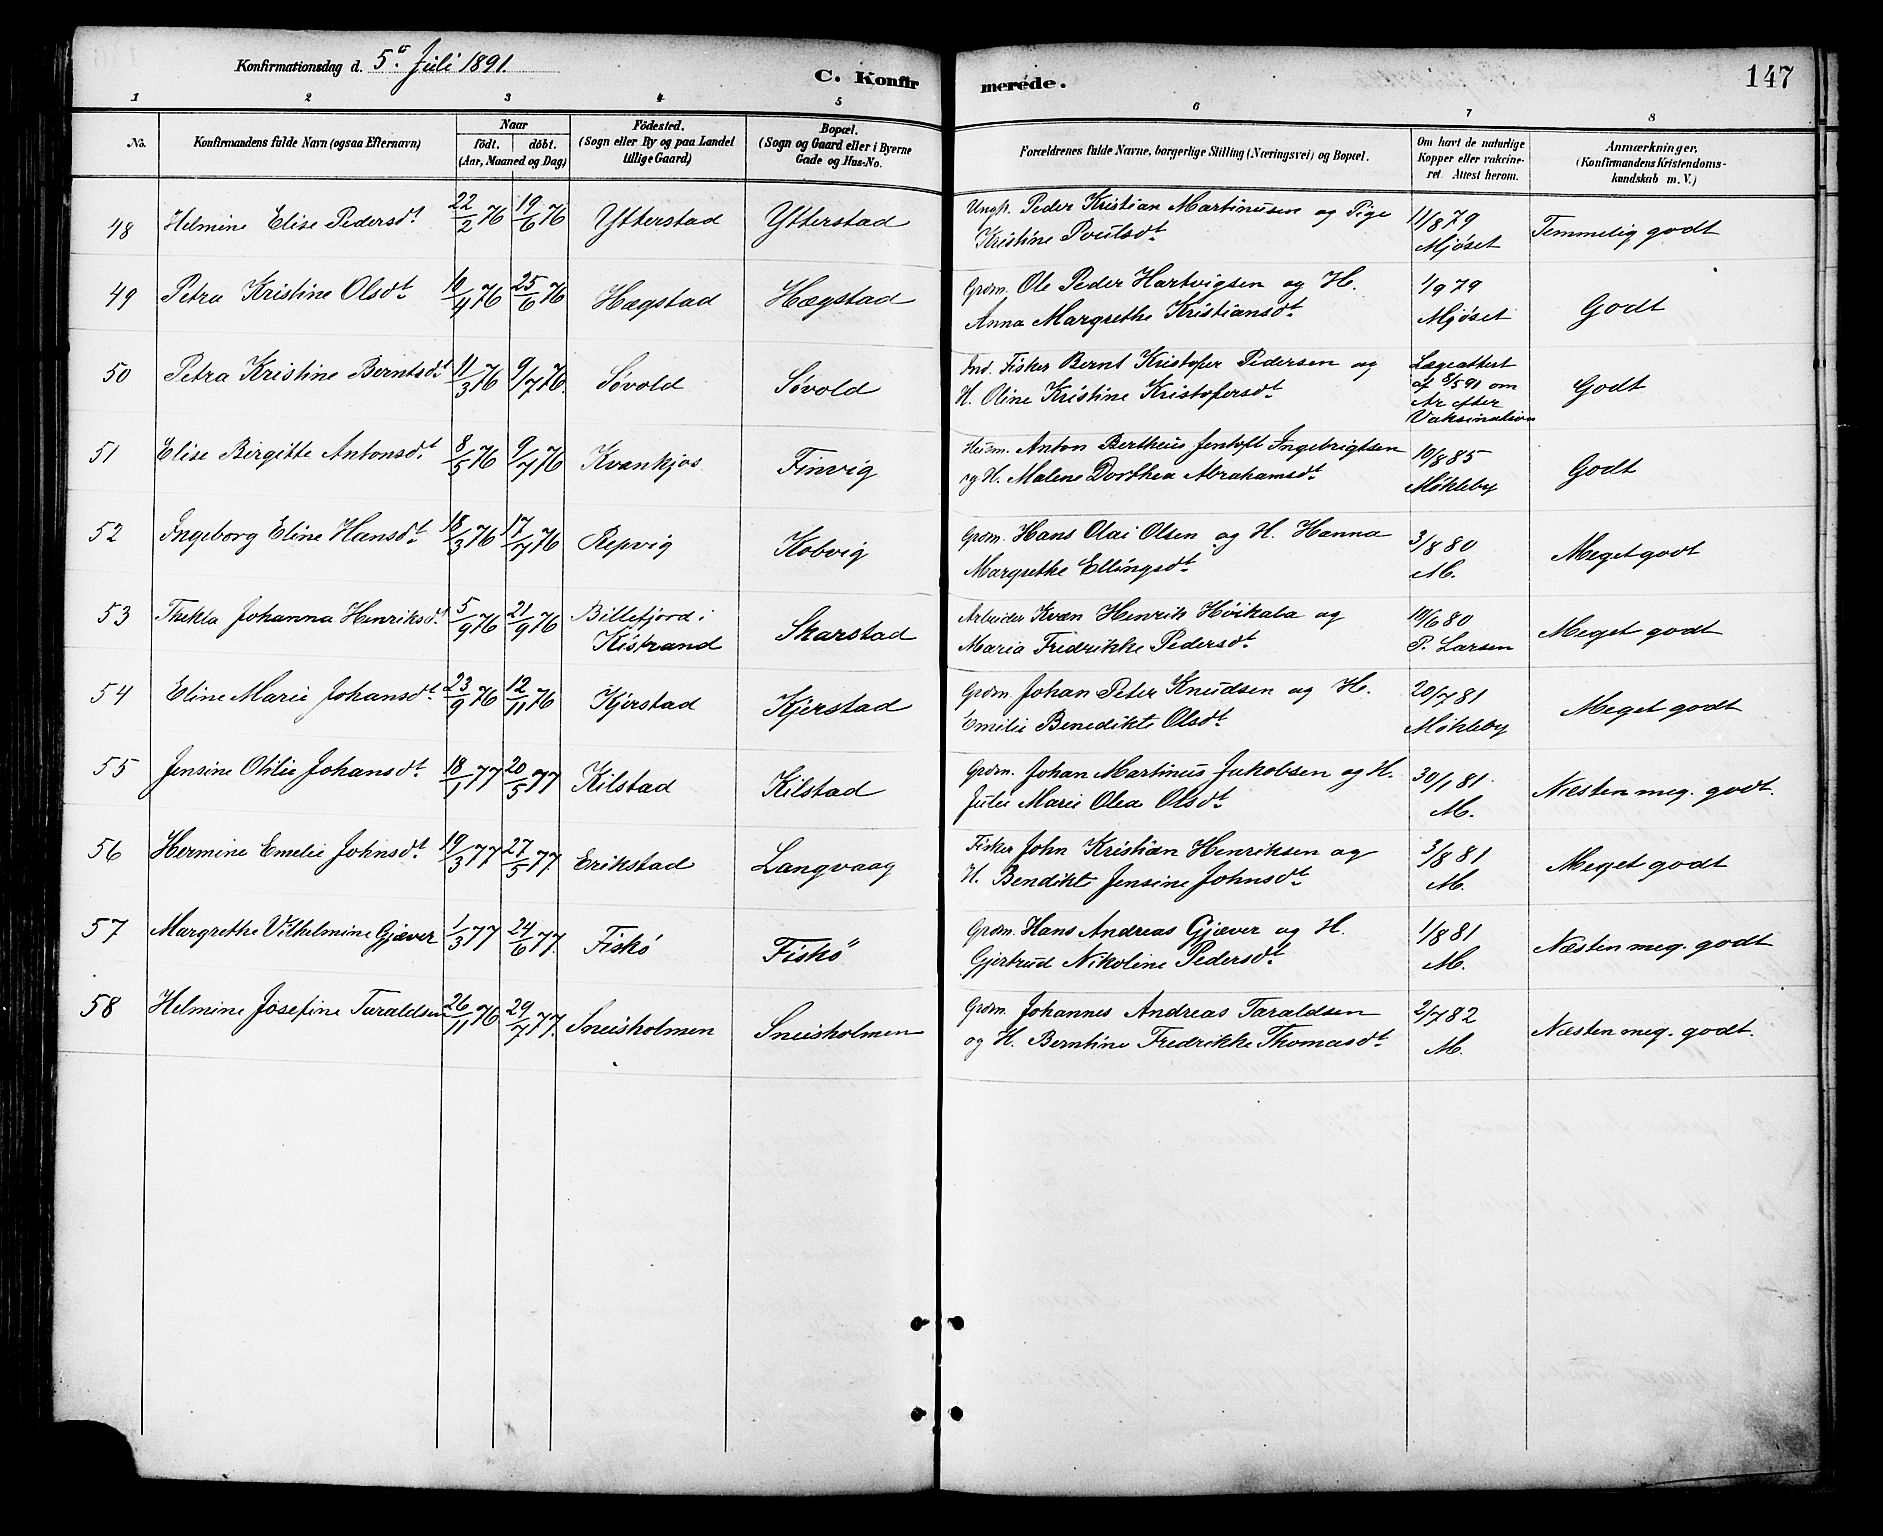 Konfirmationsdag d. 5te Juli 1891.
C. Konfirmerede.
147
1 2 3 4 5 6 7 8
No. Konfirmandens fulde Navn (ogsaa Efternavn) Naar födt. döbt. (Aar, Maaned og Dag) Födested. (Sogn eller By og paa Landet tillige Gaard) Bopæl. (Sogn og Gaard eller i Byerne Gade og Hus-No. Forældrenes fulde Navne, borgerlige Stilling (Næringsvei) og Bopæl. Om havt de naturlige Kopper eller vakcineret. Attest herom. Anmærkninger. (Konfirmandens Kristendomskundskab m. V.)
48 Helmine Elise Pedersdt 22/2 76 19/6 76 Ytterstad Ytterstad Ungk. Peder Kristian Martinusen og Pige Kristine Poulsdt 11/8 79 Mjöset Temmelig godt
49 Petra Kristine Olsdt 10/4 76 25/6 76 Hægstad Hægstad Grdm. Ole Peder Hartvigsen og H. Anna Margrethe Kristiansdt 1/9 79 Mjöset Godt
50 Petra Kristine Berntsdt 11/3 76 9/7 76. Sövold Sövold Ind. Fisker Bernt Kristofer Pedersen og H. Oline Kristine Kristofersdt Lægeattest af 8/5 91 om Ar efter Vaksination Godt
51 Elise Birgitte Antonsdt 8/5 76 9/7 76 Kvankjos Finvig Husm. Anton Bertheus Jentoft Ingebrigtsen og H. Malene Dorthea Abrahamsdt 10/8 85 Mökleby Godt
52 Ingeborg Eline Hansdt 18/3 76 17/7 76 Repvig Kobvig Grdm. Hans Olai Olsen og H. Hanna Margrethe Ellingsdt 3/8 80 M. Meget godt
53 Thekla Johanna Henriksdt 5/9 76 21/9 76 Billefjord i Kistrand Skarstad Arbeider Kvæn Henrik Höikala og Maria Fredrikke Pedersdt 10/6 80 P. Larsen Meget godt
54 Eline Marie Johansdt 23/9 76 12/11 76 Kjerstad Kjerstad Grdm. Johan Peter Knudsen og H. Emilie Benedikte Olsdt 20/7 81 Mökleby Meget godt
55 Jensine Otilie Johansdt 18/1 77 20/5 77 Kilstad Kilstad Grdm. Johan Martinus Jakobsen og H. Julie Marie Olea Olsdt 30/1 81. M. Næsten meg. godt.
56 Hermine Emelie Johnsdt 19/3 77 27/5 77. Erikstad Langvaag Fisker John Kristian Henriksen og H. Bendikte Jensine Johnsdt 3/8 81 M. Meget godt
57 Margrethe Vilhelmine Gjæver 1/3 77 24/6 77. Fiskö Fiskö Grdm. Hans Andreas Gjæver og H. Gjertrud Nikoline Pedersdt 1/8 81 M. Næsten meg. godt
58 Helmine Josefine Taraldsen 26/11 76 29/7 77. Sneisholmen Sneisholmen Grdm. Johannes Andreas Taraldsen og H. Berntine Fredrikke Thomasdt 2/7 82 M. Næsten meg. godt.